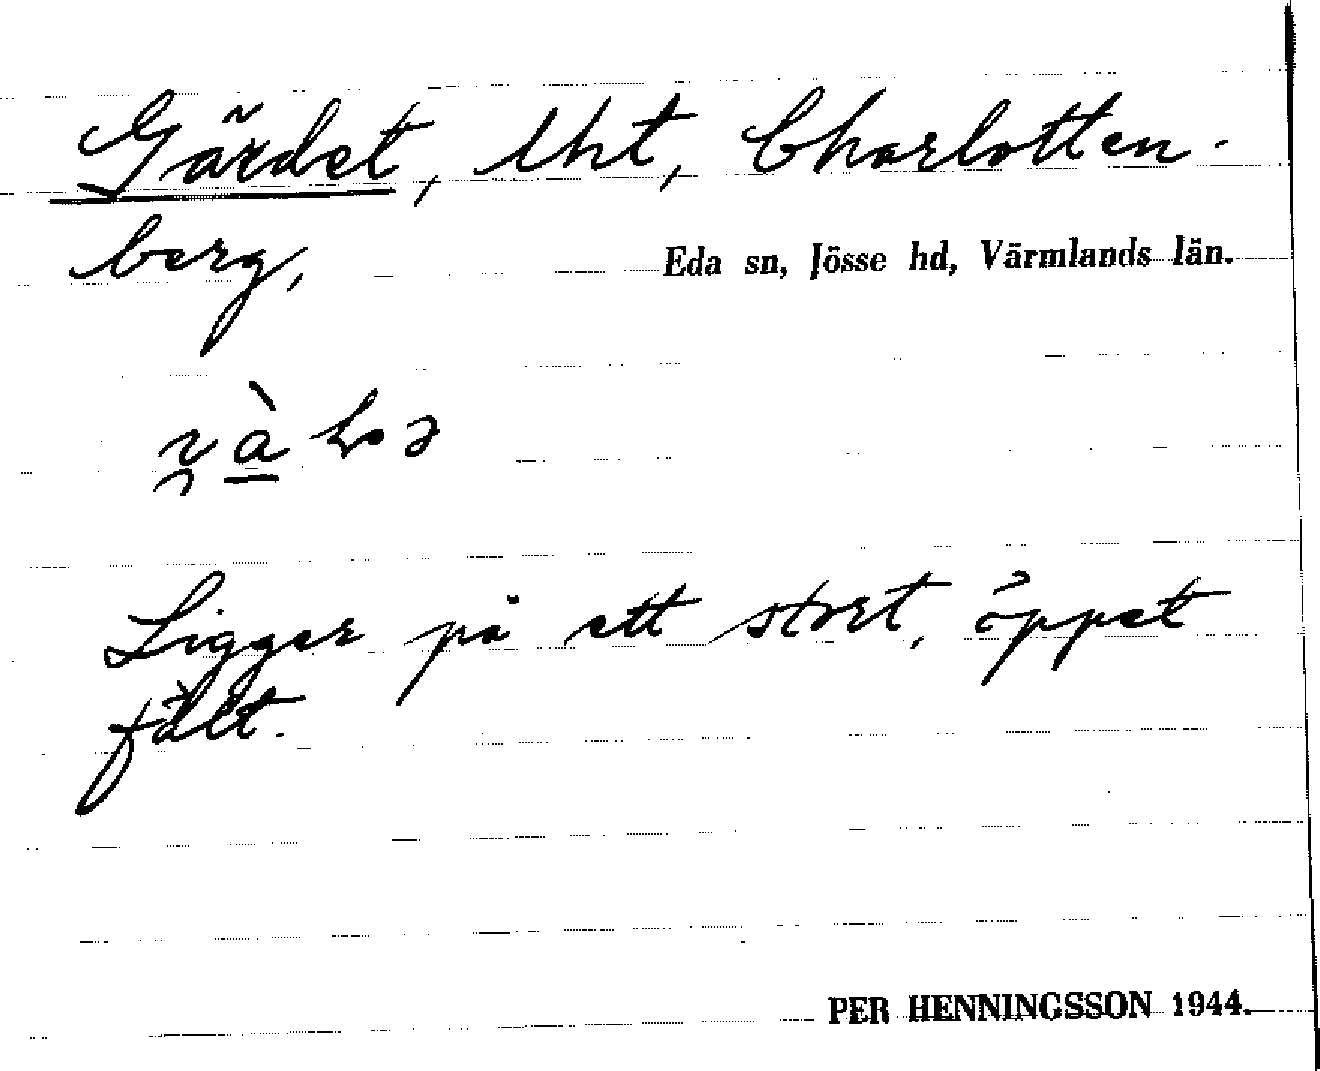 Gärdet, lht, Charlotten-
berg,
Eda sn, Jösse hd, Värmlands län.
Ligger på ett stort, öppet
fält.
PER HENNINGSSON 1944.